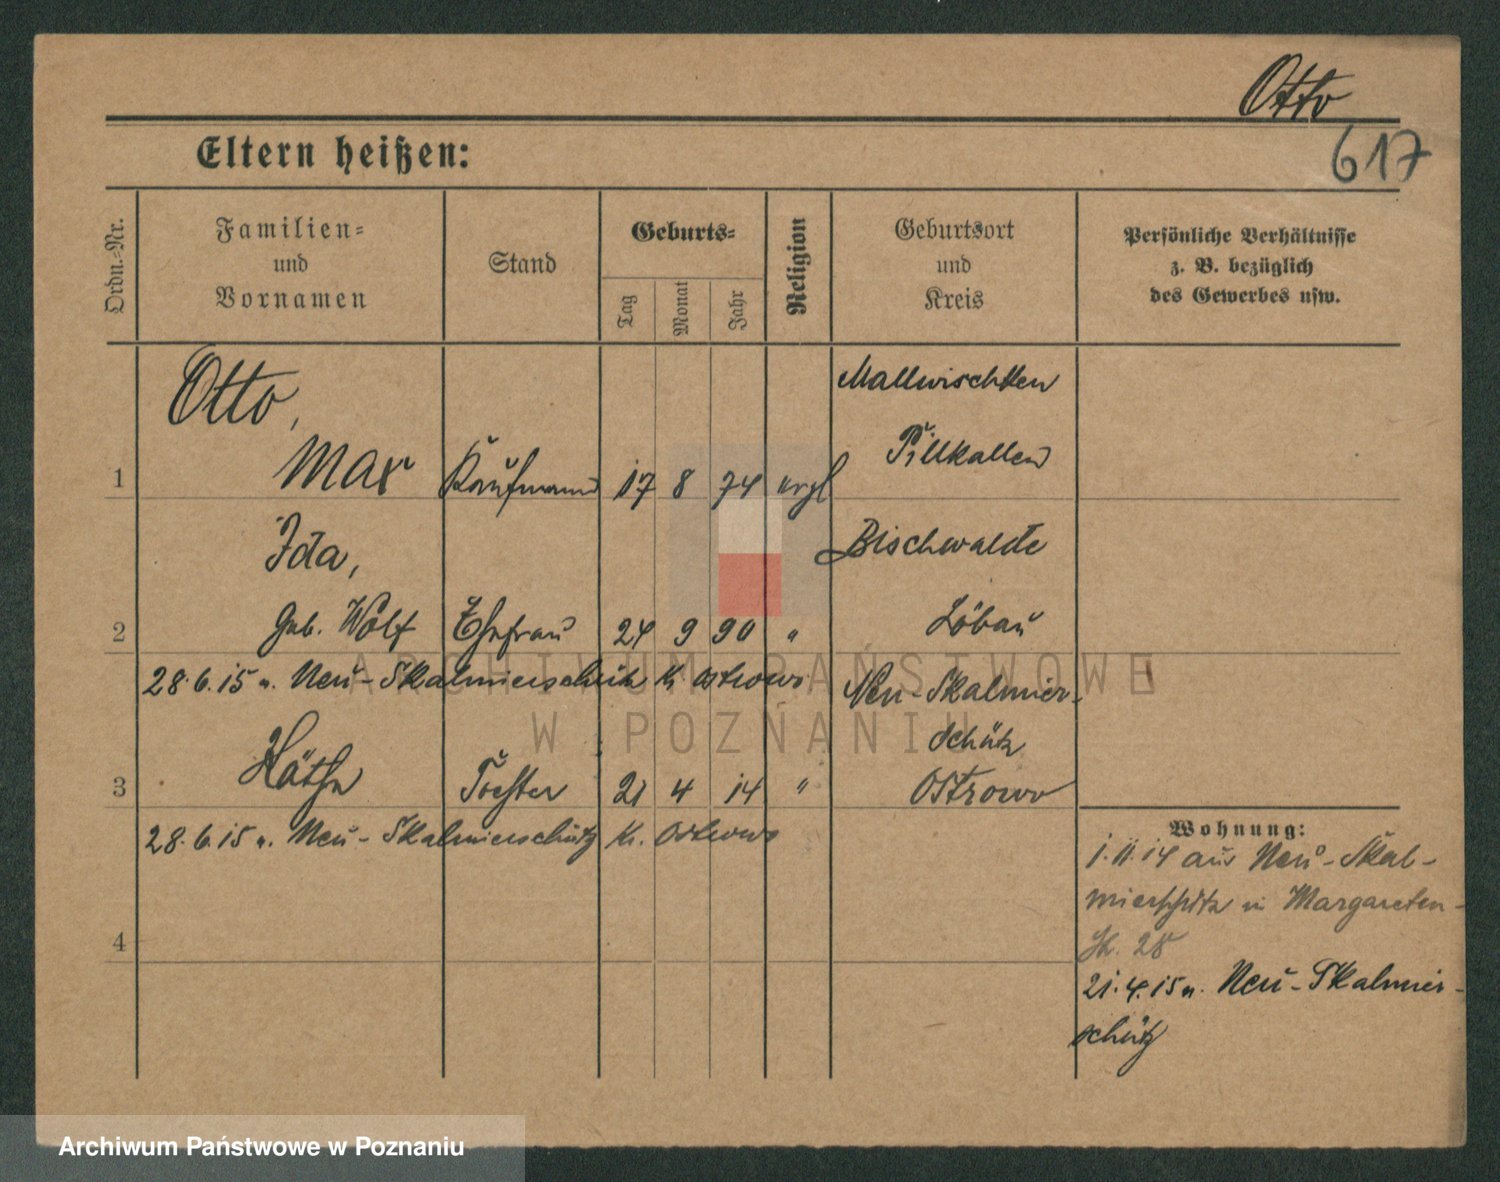 Otto
617
Eltern heißen:
Ordn.-Nr.
Familien-
und
Vornamen
Stand
Geburts-
Tag
Monat
Jahr
Religion
Geburtsort
und
Kreis
Persönliche Verhältnisse
z. B. bezüglich
des Gewerbes usw.
Otto,
Mallwischken
1 Max Kaufmann 17 8 74 evgl Pillkallen
Ida, Bischwalde
2 geb. Wolf Ehefrau 24 9 90 " Löbau
28.6.15 n. Neu-Skalmierschütz Kr. Ostrowo
Neu-Skalmier-
schütz
3 Käthe Tochter 21 4 14 " Ostrowo
28.6.15 n. Neu-Skalmierschütz Kr. Ostrowo
4
Wohnung:
1.11.14 aus Neu-Skal-
mierschütz in Margareten-
str. 28
21.4.15 n. Neu-Skalmier-
schütz
ARCHIWUM PAŃSTWOWE
W POZNANIU
Archiwum Państwowe w Poznaniu